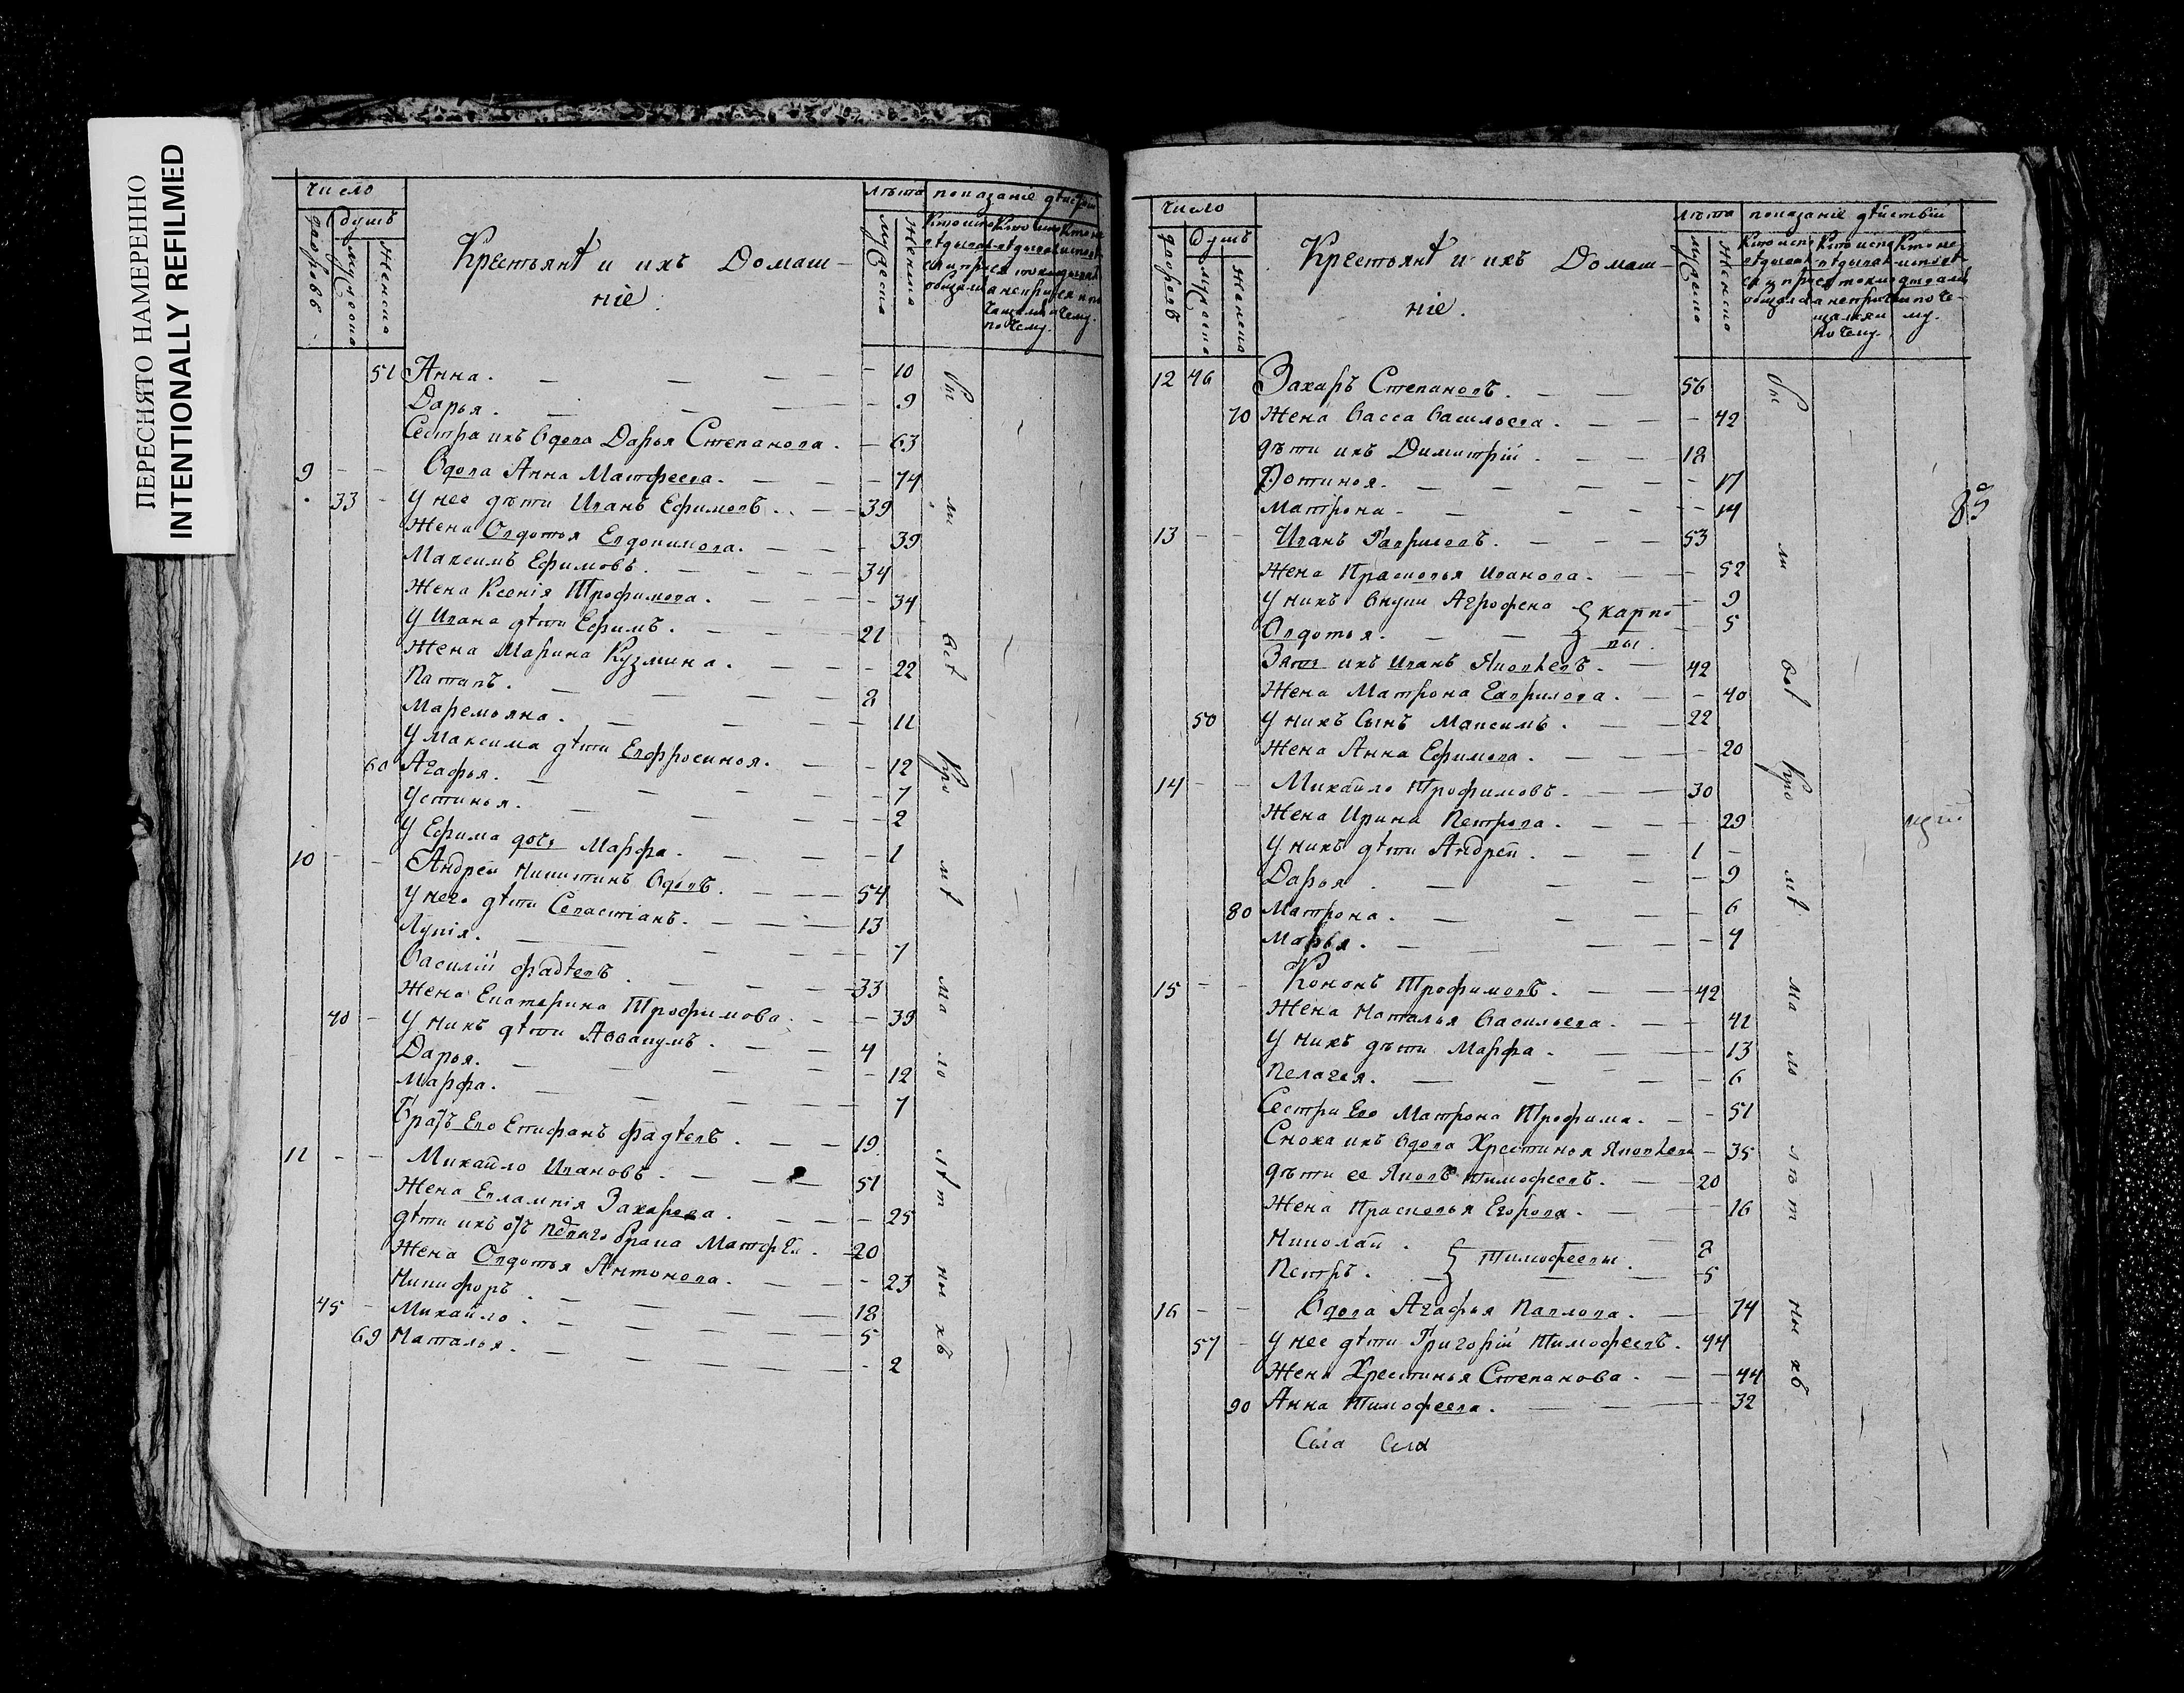 ПЕРЕСНЯТО НАМЕРЕННО
INTENTIONALLY REFILMED
число
лѣта показаніе дѣйствій
дворовъ
душъ
мужеска
женска
Крестьянѣ и ихъ Домаш-
ніе.
мужеска
женска
51 Анна. — 10
Дарья. — 9
Сестра ихъ вдова Дарья Степанова. — 63
9 Вдова Анна Матфеева. — 74
33 У нее дѣти Иванъ Ефимовъ. — 39
Жена Овдотья Евдокимова. — 39
Максимъ Ефимовъ. — 34
Жена Ксенія Трофимова. — 34
У Ивана дѣти Ефимъ. — 21
Жена Марина Кузмина. — 22
Патапъ. — 8
Маремьяна. — 11
У Максима дѣти Евфросинья. — 12
60 Агафья. — 7
Устинья. — 2
У Ефима дочь Марфа. — 1
10 Андрей Никитинъ вдовъ. — 54
У него дѣти Севастіанъ. — 13
Лукія. — 7
Василій Фадѣевъ. — 33
Жена Екатерина Трофимова. — 39
40 У нихъ дѣти Аввакумъ. — 4
Дарья. — 12
Марфа. — 7
Братъ Его Епифанъ Фадѣевъ. — 19
11 Михайло Ивановъ. — 51
Жена Евлампія Захарова. — 25
дѣти ихъ отъ перваго брака Матфѣй. — 20
Жена Овдотья Антонова. — 23
Никифоръ. — 18
45 Михайло. — 5
69 Наталья. — 2
всѣ
кро
мѣ
ма
ло
лѣт
ны
хъ
число
лѣта показаніе дѣйствій
дворовъ
душъ
мужеска
женска
Крестьянѣ и ихъ Домаш-
ніе.
мужеска
женска
12 46 Захаръ Степановъ. — 56
70 Жена Васса Васильева. — 42
дѣти ихъ Димитрій. — 18
Фотинья. — 17
Матрона. — 14
85
13 Иванъ Гавриловъ. — 53
Жена Прасковья Иванова. — 52
У нихъ внуки Агрофена } Карпо- 9
Овдотья. — вы. 5
Зять ихъ Иванъ Яковлевъ. — 42
Жена Матрона Гаврилова. — 40
50 У нихъ Сынъ Максимъ. — 22
Жена Анна Ефимова. — 20
14 Михайло Трофимовъ. — 30
Жена Ирина Петрова. — 29
У нихъ дѣти Андрей. — 1
Дарья. — 9
80 Матрона. — 6
Марья. — 4
15 Кононъ Трофимовъ. — 42
Жена Наталья Васильева. — 41
У нихъ дѣти Марфа. — 13
Пелагея. — 6
Сестра Его Матрона Трофима. — 51
Сноха ихъ вдова Христинья Яковлева — 35
дѣти ее Яковъ Тимофеевъ. — 20
Жена Прасковья Егорова. — 16
Николай. } Тимофеевы. 8
Петръ. — 5
16 Вдова Агафья Павлова. — 74
57 У нее дѣти Григорій Тимофеевъ. 44
Жена Христинья Степанова. — 44
90 Анна Тимофеева. — 32
Села Села
всѣ
кро
мѣ
ма
ло
лѣт
ны
хъ